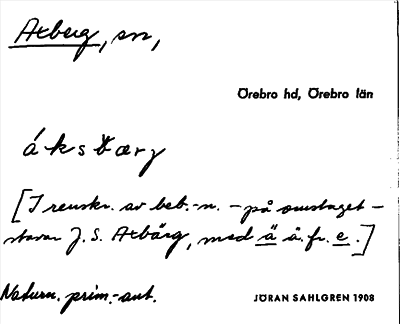 Axberg, sn,
Örebro hd, Örebro län
áksbærj
[I renskr. av beb.-n. - på omslaget -
stavar J. S. Axbärg, med ä å. fr. e.]
Naturn. prim.-ant.
JÖRAN SAHLGREN 1908